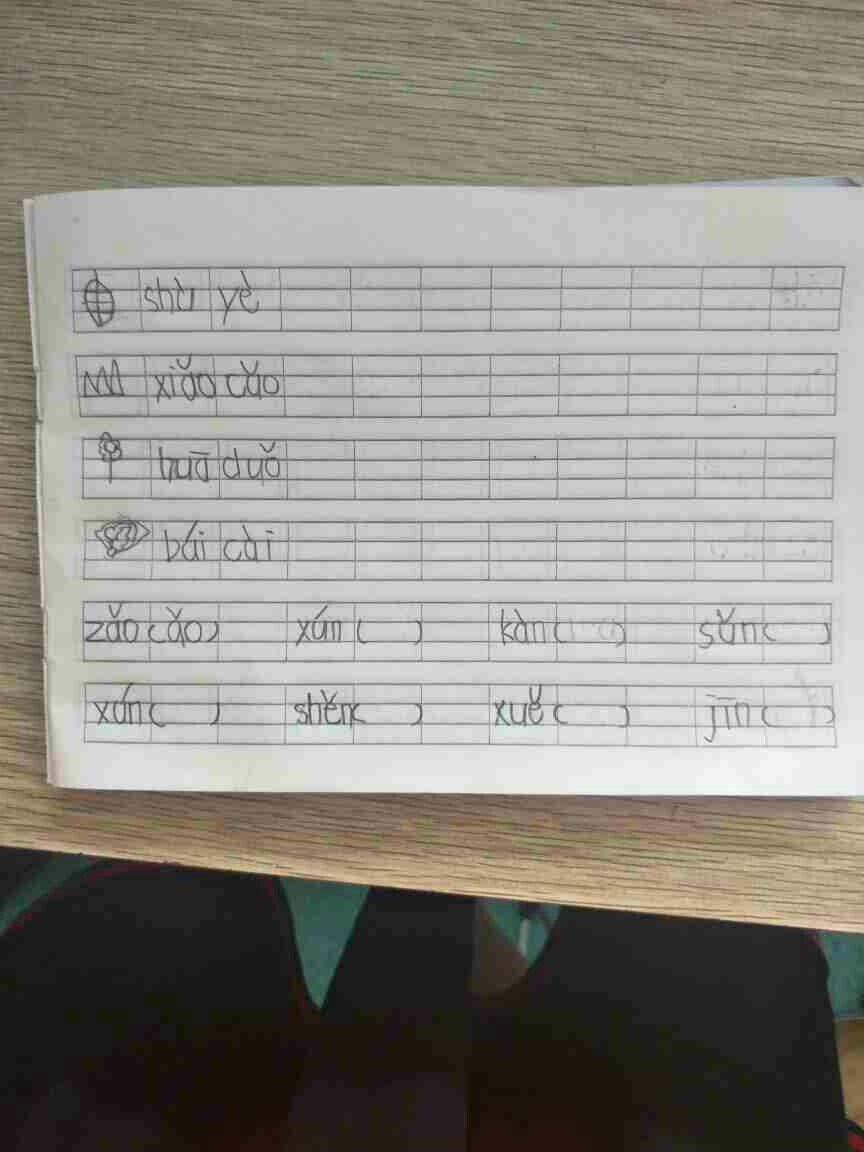 shù yè
xiǎo cǎo
huā duǒ
bái cài
zǎo(cǎo) xún( ) kàn( ) sǔn( )
xún( ) shěn( ) xuě( ) jīn( )